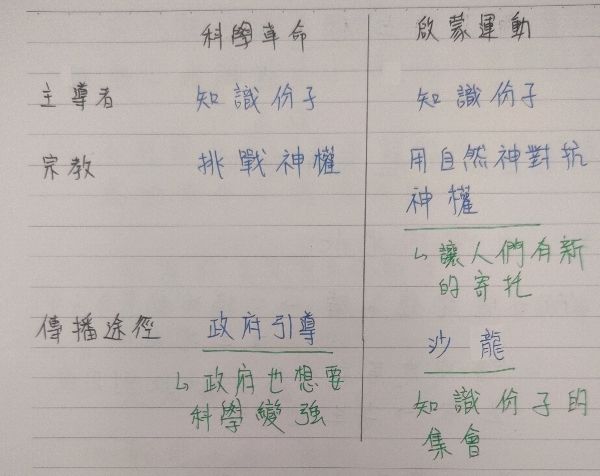 科學革命 啟蒙運動
主導者 知識份子 知識份子
宗教 挑戰神權 用自然神對抗
神權
↳讓人們有新
的寄托
傳播途徑 政府引導 沙龍
↳政府也想要
科學變強
知識份子的
集會